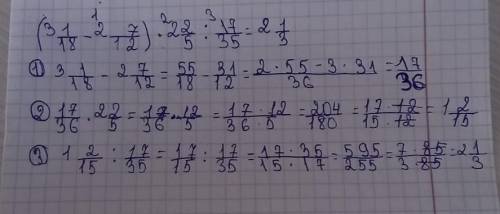 (3 1/18 - 2 7/12) · 2 2/5 : 17/35 = 2 1/3
1 2 3
① 3 1/18 - 2 7/12 = 55/18 - 31/12 = 2 · 55 - 3 · 31/36 = 17/36
② 17/36 · 2 2/5 = 17/36 · 12/5 = 17 · 12/36 · 5 = 204/180 = 17 · 12/15 · 12 = 1 2/15
③ 1 2/15 : 17/35 = 17/15 : 17/35 = 17 · 35/15 · 17 = 595/255 = 7 · 85/3 · 85 = 2 1/3